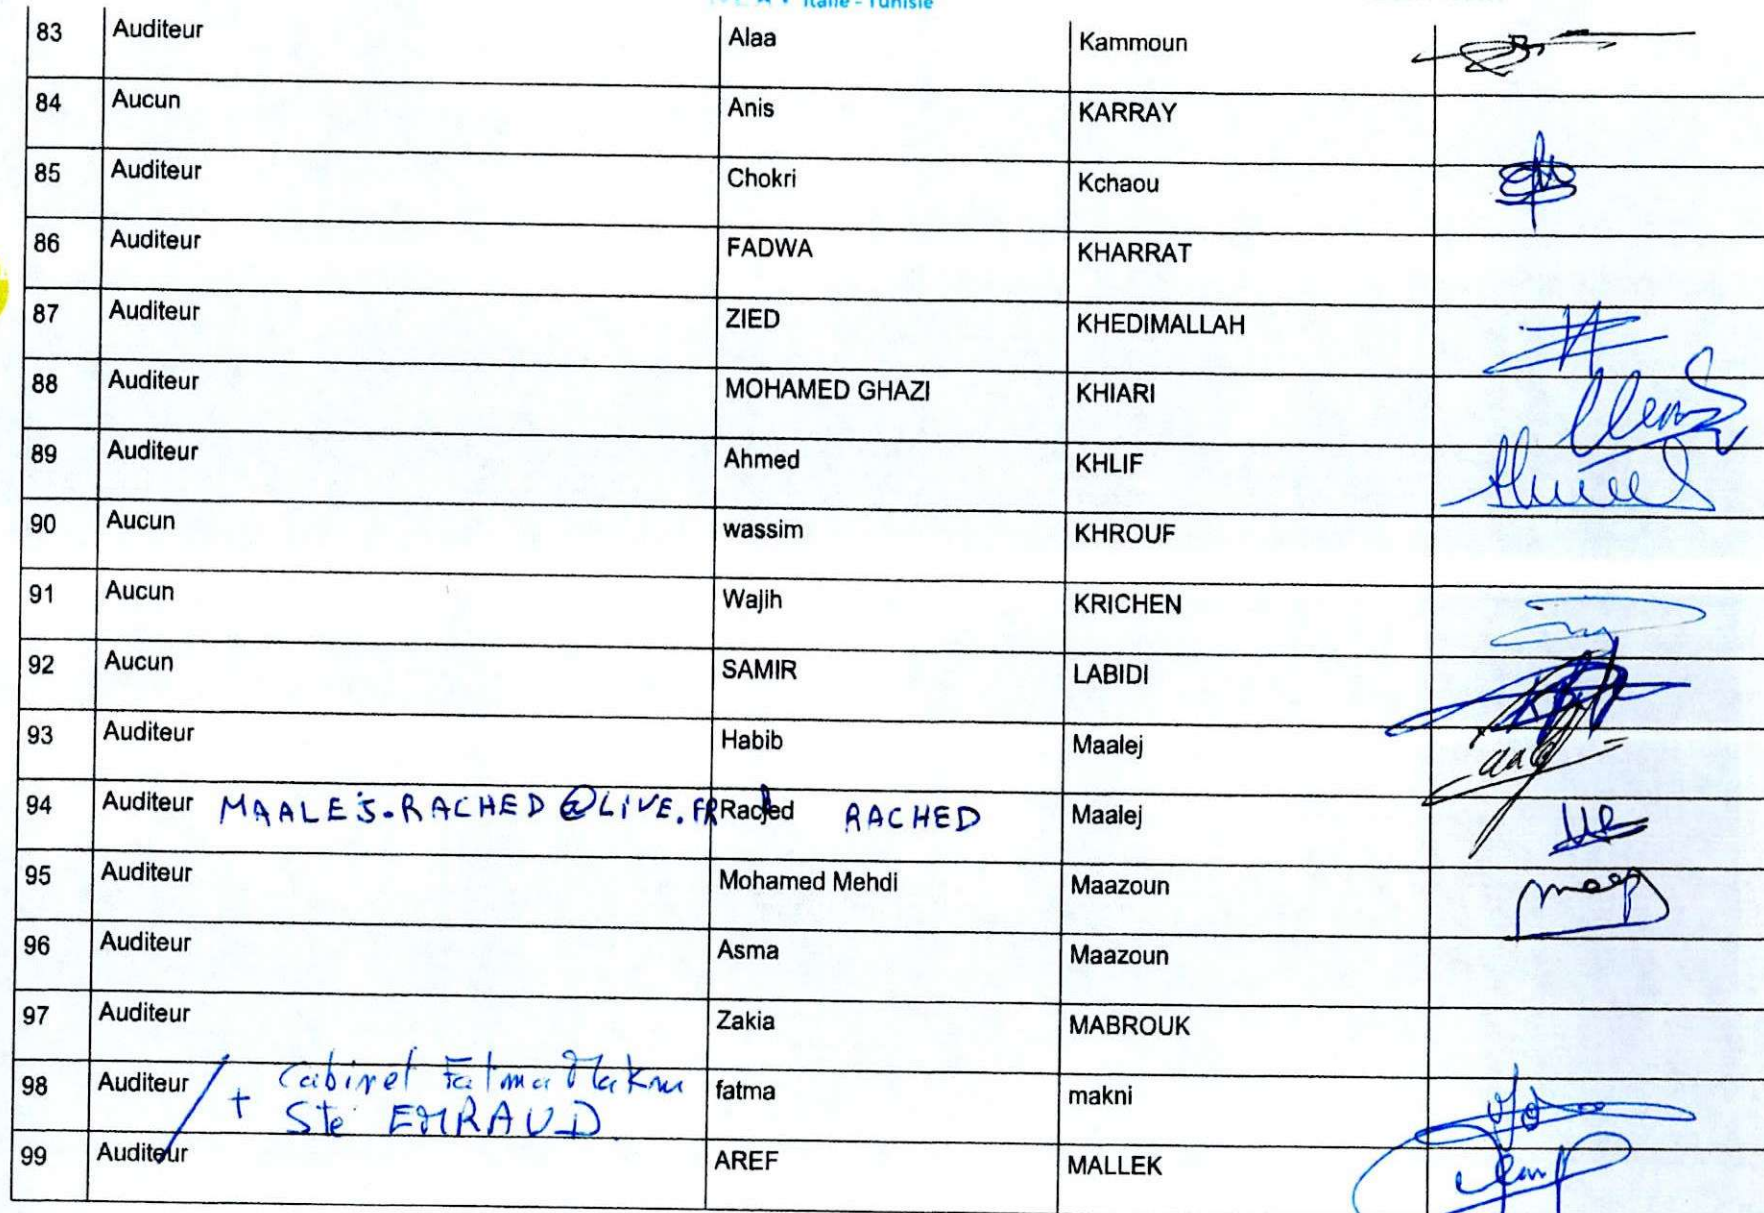 Italie - Tunisie
83 Auditeur Alaa Kammoun
84 Aucun Anis KARRAY
85 Auditeur Chokri Kchaou
86 Auditeur FADWA KHARRAT
87 Auditeur ZIED KHEDIMALLAH
88 Auditeur MOHAMED GHAZI KHIARI
89 Auditeur Ahmed KHLIF
90 Aucun wassim KHROUF
91 Aucun Wajih KRICHEN
92 Aucun SAMIR LABIDI
93 Auditeur Habib Maalej
94 Auditeur MAALEJ.RACHED@LIVE.FR Rached RACHED Maalej
95 Auditeur Mohamed Mehdi Maazoun
96 Auditeur Asma Maazoun
97 Auditeur Zakia MABROUK
98 Auditeur + Cabinet Fatma Makni fatma makni
Ste EMRAUD
99 Auditeur AREF MALLEK